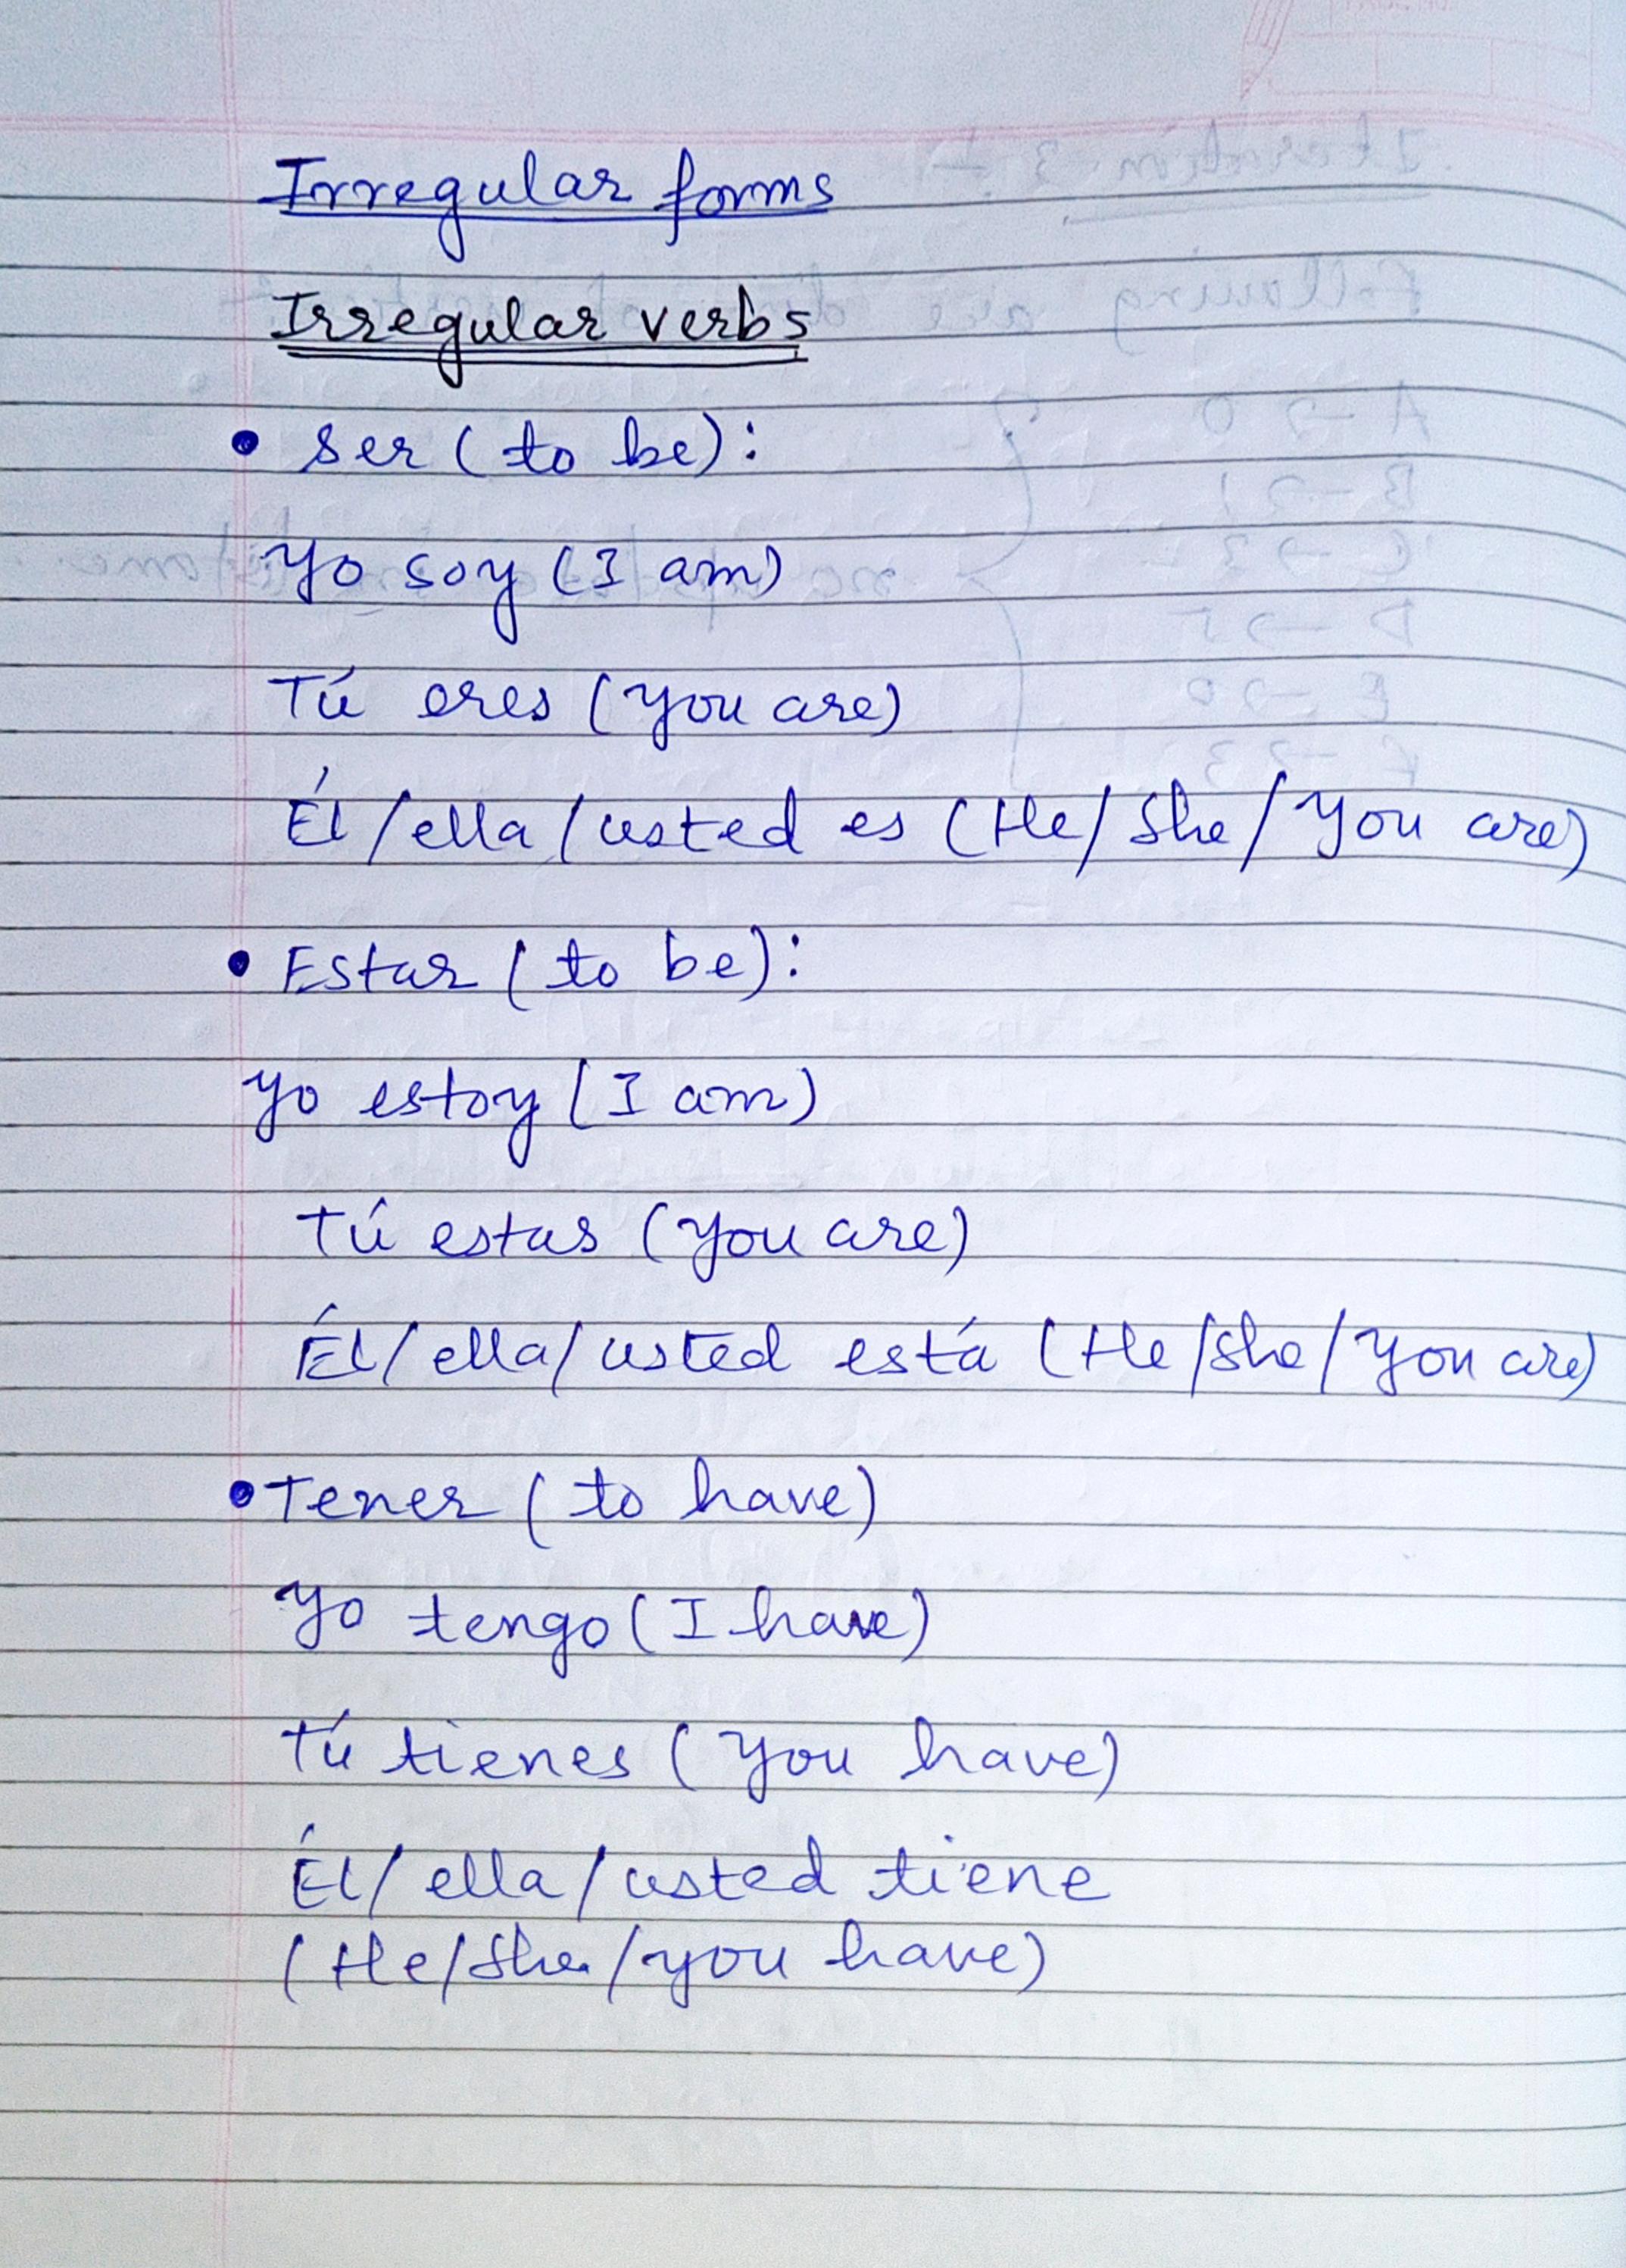 Irregular forms
Irregular verbs
• Ser (to be):
Yo soy (I am)
Tú eres (you are)
Él/ella/usted es (He/She/You are)
• Estar (to be):
Yo estoy (I am)
Tú estas (you are)
Él/ella/usted está (He/She/You are)
• Tener (to have)
Yo tengo (I have)
Tú tienes (You have)
Él/ella/usted tiene
(He/She/you have)